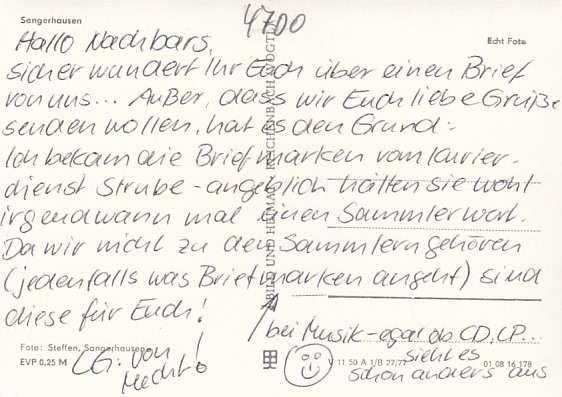 Sangerhausen
4700
Echt Foto
Hallo Nachbars,
sicher wundert Ihr Euch über einen Brief
von uns... Außer, dass wir Euch liebe Grüße
senden wollen, hat es den Grund:
Ich bekam die Briefmarken vom Kurier-
dienst Strube - angeblich hätten sie wohl
irgendwann mal einen Sammlerwert.
Da wir nicht zu den Sammlern gehören
(jedenfalls was Briefmarken angeht) sind
diese für Euch!
bei Musik - egal ob CD, LP...
sieht es
schon anders aus
LG. von
Mecht!
BILD UND HEIMAT REICHENBACH (VOGTL)
Foto: Steffen, Sangerhausen
EVP 0,25 M
V 11 50 A 1/B 27/77
01 08 16 178